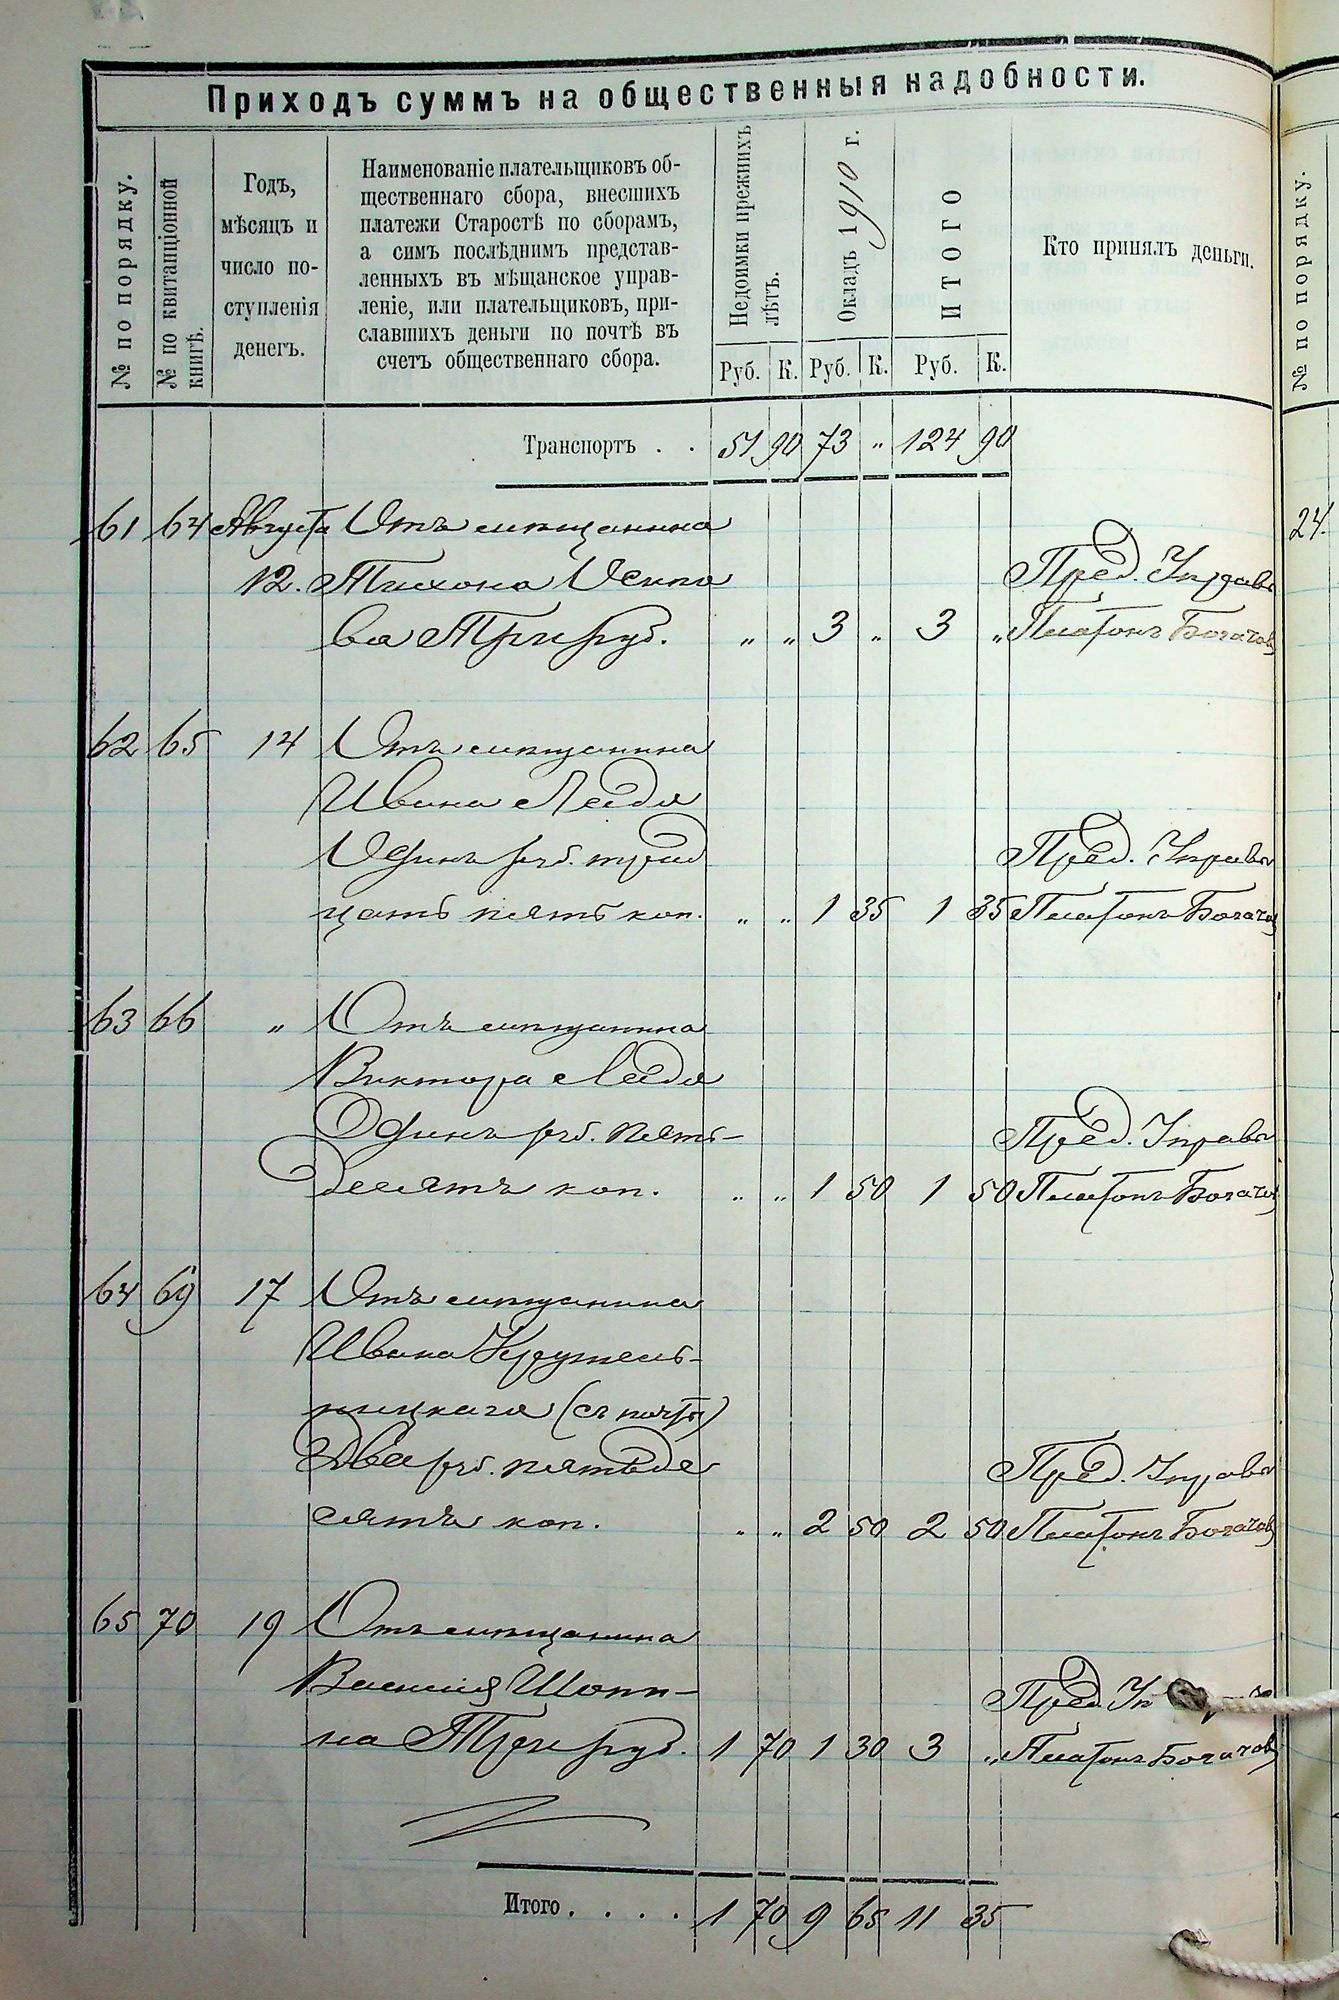 Приходъ суммъ на общественныя надобности.
№ по порядку.
№ по квитанціонной
книгѣ.
Годъ,
мѣсяцъ и
число по-
ступленія
денегъ.
Наименованіе плательщиковъ об-
щественнаго сбора, внесшихъ
платежи Старостѣ по сборамъ,
а симъ послѣднимъ представ-
ленныхъ въ мѣщанское управ-
леніе, или плательщиковъ, при-
славшихъ деньги по почтѣ въ
счетъ общественнаго сбора.
Недоимки прежнихъ
лѣтъ.
Окладъ 1910 г.
ИТОГО
Кто принялъ деньги.
Руб. К. Руб. К. Руб. К.
№ по порядку.
Транспортъ . . 51 90 73 „ 124 90
61 64 Августа Отъ мѣщанина
24.
12. Тихона Осипо
Пред. Управы
ва Три руб. „ „ 3 „ 3 „ Платонъ Богачов
62 65 14 Отъ мѣщанина
Ивана
Одинъ руб. трид
Пред. Управы
цать пять коп. „ „ 1 35 1 35 Платонъ Богачов
63 66 „ Отъ мѣщанина
Виктора
Одинъ руб. пять-
Пред. Управы
десятъ коп. „ „ 1 50 1 50 Платонъ Богачов
64 69 17 Отъ мѣщанина
Ивана Кружель-
ницкаго (съ почты)
Два руб. пятьде
Пред. Управы
сятъ коп. „ „ 2 50 2 50 Платонъ Богачов
65 70 19 Отъ мѣщанина
Василія Шопи-
Пред.
на Три руб. 1 70 1 30 3 „ Платонъ Богачов
Итого . . . . 1 70 9 65 11 35